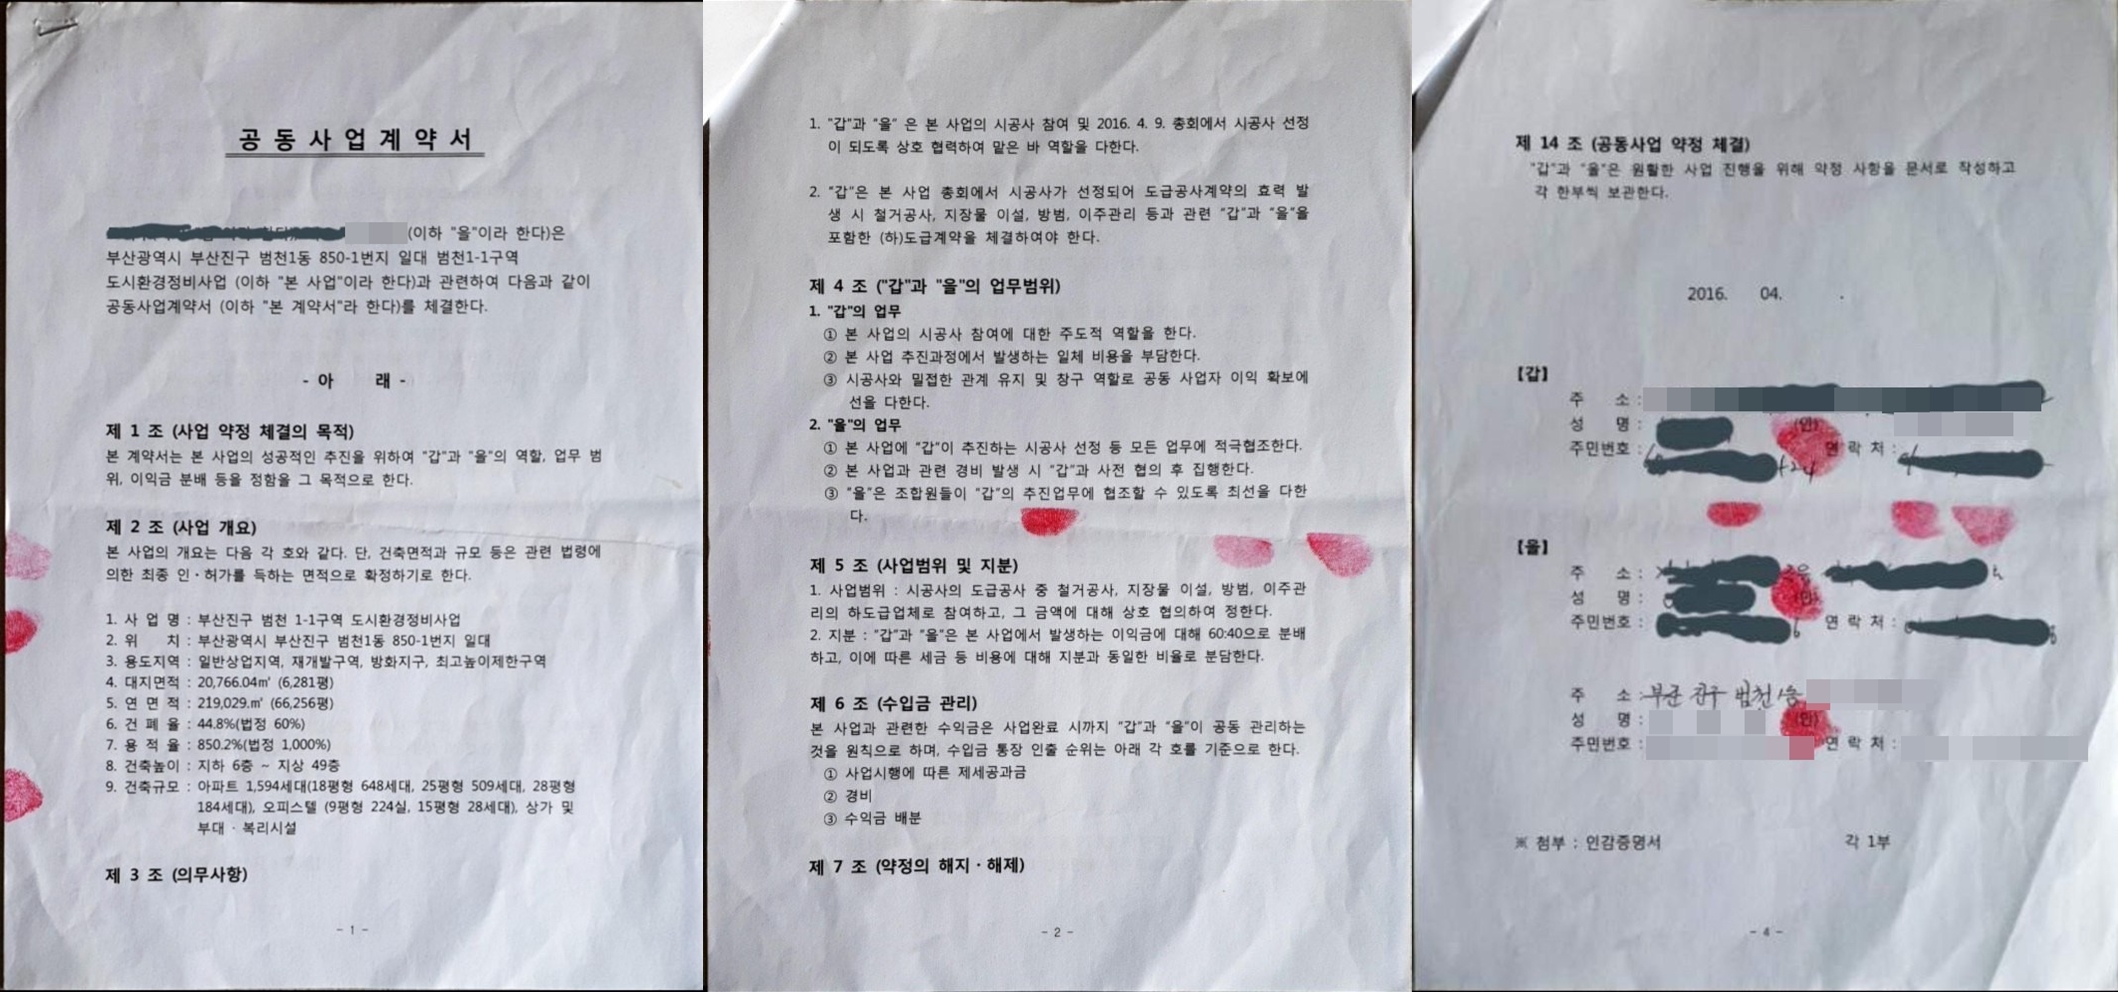 공 동 사 업 계 약 서
(이하 "을"이라 한다)은
부산광역시 부산진구 범천1동 850-1번지 일대 범천1-1구역
도시환경정비사업 (이하 "본 사업"이라 한다)과 관련하여 다음과 같이
공동사업계약서 (이하 "본 계약서"라 한다)를 체결한다.
- 아 래 -
제 1 조 (사업 약정 체결의 목적)
본 계약서는 본 사업의 성공적인 추진을 위하여 "갑"과 "을"의 역할, 업무 범
위, 이익금 분배 등을 정함을 그 목적으로 한다.
제 2 조 (사업 개요)
본 사업의 개요는 다음 각 호와 같다. 단, 건축면적과 규모 등은 관련 법령에
의한 최종 인·허가를 득하는 면적으로 확정하기로 한다.
1. 사 업 명 : 부산진구 범천 1-1구역 도시환경정비사업
2. 위 치 : 부산광역시 부산진구 범천1동 850-1번지 일대
3. 용도지역 : 일반상업지역, 재개발구역, 방화지구, 최고높이제한구역
4. 대지면적 : 20,766.04㎡ (6,281평)
5. 연 면 적 : 219,029.㎡ (66,256평)
6. 건 폐 율 : 44.8%(법정 60%)
7. 용 적 율 : 850.2%(법정 1,000%)
8. 건축높이 : 지하 6층 ~ 지상 49층
9. 건축규모 : 아파트 1,594세대(18평형 648세대, 25평형 509세대, 28평형
184세대), 오피스텔 (9평형 224실, 15평형 28세대), 상가 및
부대 · 복리시설
제 3 조 (의무사항)
- 1 -
1. "갑"과 "을" 은 본 사업의 시공사 참여 및 2016. 4. 9. 총회에서 시공사 선정
이 되도록 상호 협력하여 맡은 바 역할을 다한다.
2. "갑"은 본 사업 총회에서 시공사가 선정되어 도급공사계약의 효력 발
생 시 철거공사, 지장물 이설, 방범, 이주관리 등과 관련 "갑"과 "을"을
포함한 (하)도급계약을 체결하여야 한다.
제 4 조 ("갑"과 "을"의 업무범위)
1. "갑"의 업무
① 본 사업의 시공사 참여에 대한 주도적 역할을 한다.
② 본 사업 추진과정에서 발생하는 일체 비용을 부담한다.
③ 시공사와 밀접한 관계 유지 및 창구 역할로 공동 사업자 이익 확보에
선을 다한다.
2. "을"의 업무
① 본 사업에 "갑"이 추진하는 시공사 선정 등 모든 업무에 적극협조한다.
② 본 사업과 관련 경비 발생 시 "갑"과 사전 협의 후 집행한다.
③ "을"은 조합원들이 "갑"의 추진업무에 협조할 수 있도록 최선을 다한
다.
제 5 조 (사업범위 및 지분)
1. 사업범위 : 시공사의 도급공사 중 철거공사, 지장물 이설, 방범, 이주관
리의 하도급업체로 참여하고, 그 금액에 대해 상호 협의하여 정한다.
2. 지분 : "갑"과 "을"은 본 사업에서 발생하는 이익금에 대해 60:40으로 분배
하고, 이에 따른 세금 등 비용에 대해 지분과 동일한 비율로 분담한다.
제 6 조 (수입금 관리)
본 사업과 관련한 수익금은 사업완료 시까지 "갑"과 "을"이 공동 관리하는
것을 원칙으로 하며, 수입금 통장 인출 순위는 아래 각 호를 기준으로 한다.
① 사업시행에 따른 제세공과금
② 경비
③ 수익금 배분
제 7 조 (약정의 해지 · 해제)
- 2 -
제 14 조 (공동사업 약정 체결)
"갑"과 "을"은 원활한 사업 진행을 위해 약정 사항을 문서로 작성하고
각 한부씩 보관한다.
2016. 04. .
【갑】
주 소 :
성 명 : (인)
주민번호 : 연 락 처 :
【을】
주 소 :
성 명 : (인)
주민번호 : 연 락 처 :
주 소 : 부산 진구 범천1동
성 명 : (인)
주민번호 : 연 락 처 :
※ 첨부 : 인감증명서 각 1부
- 4 -